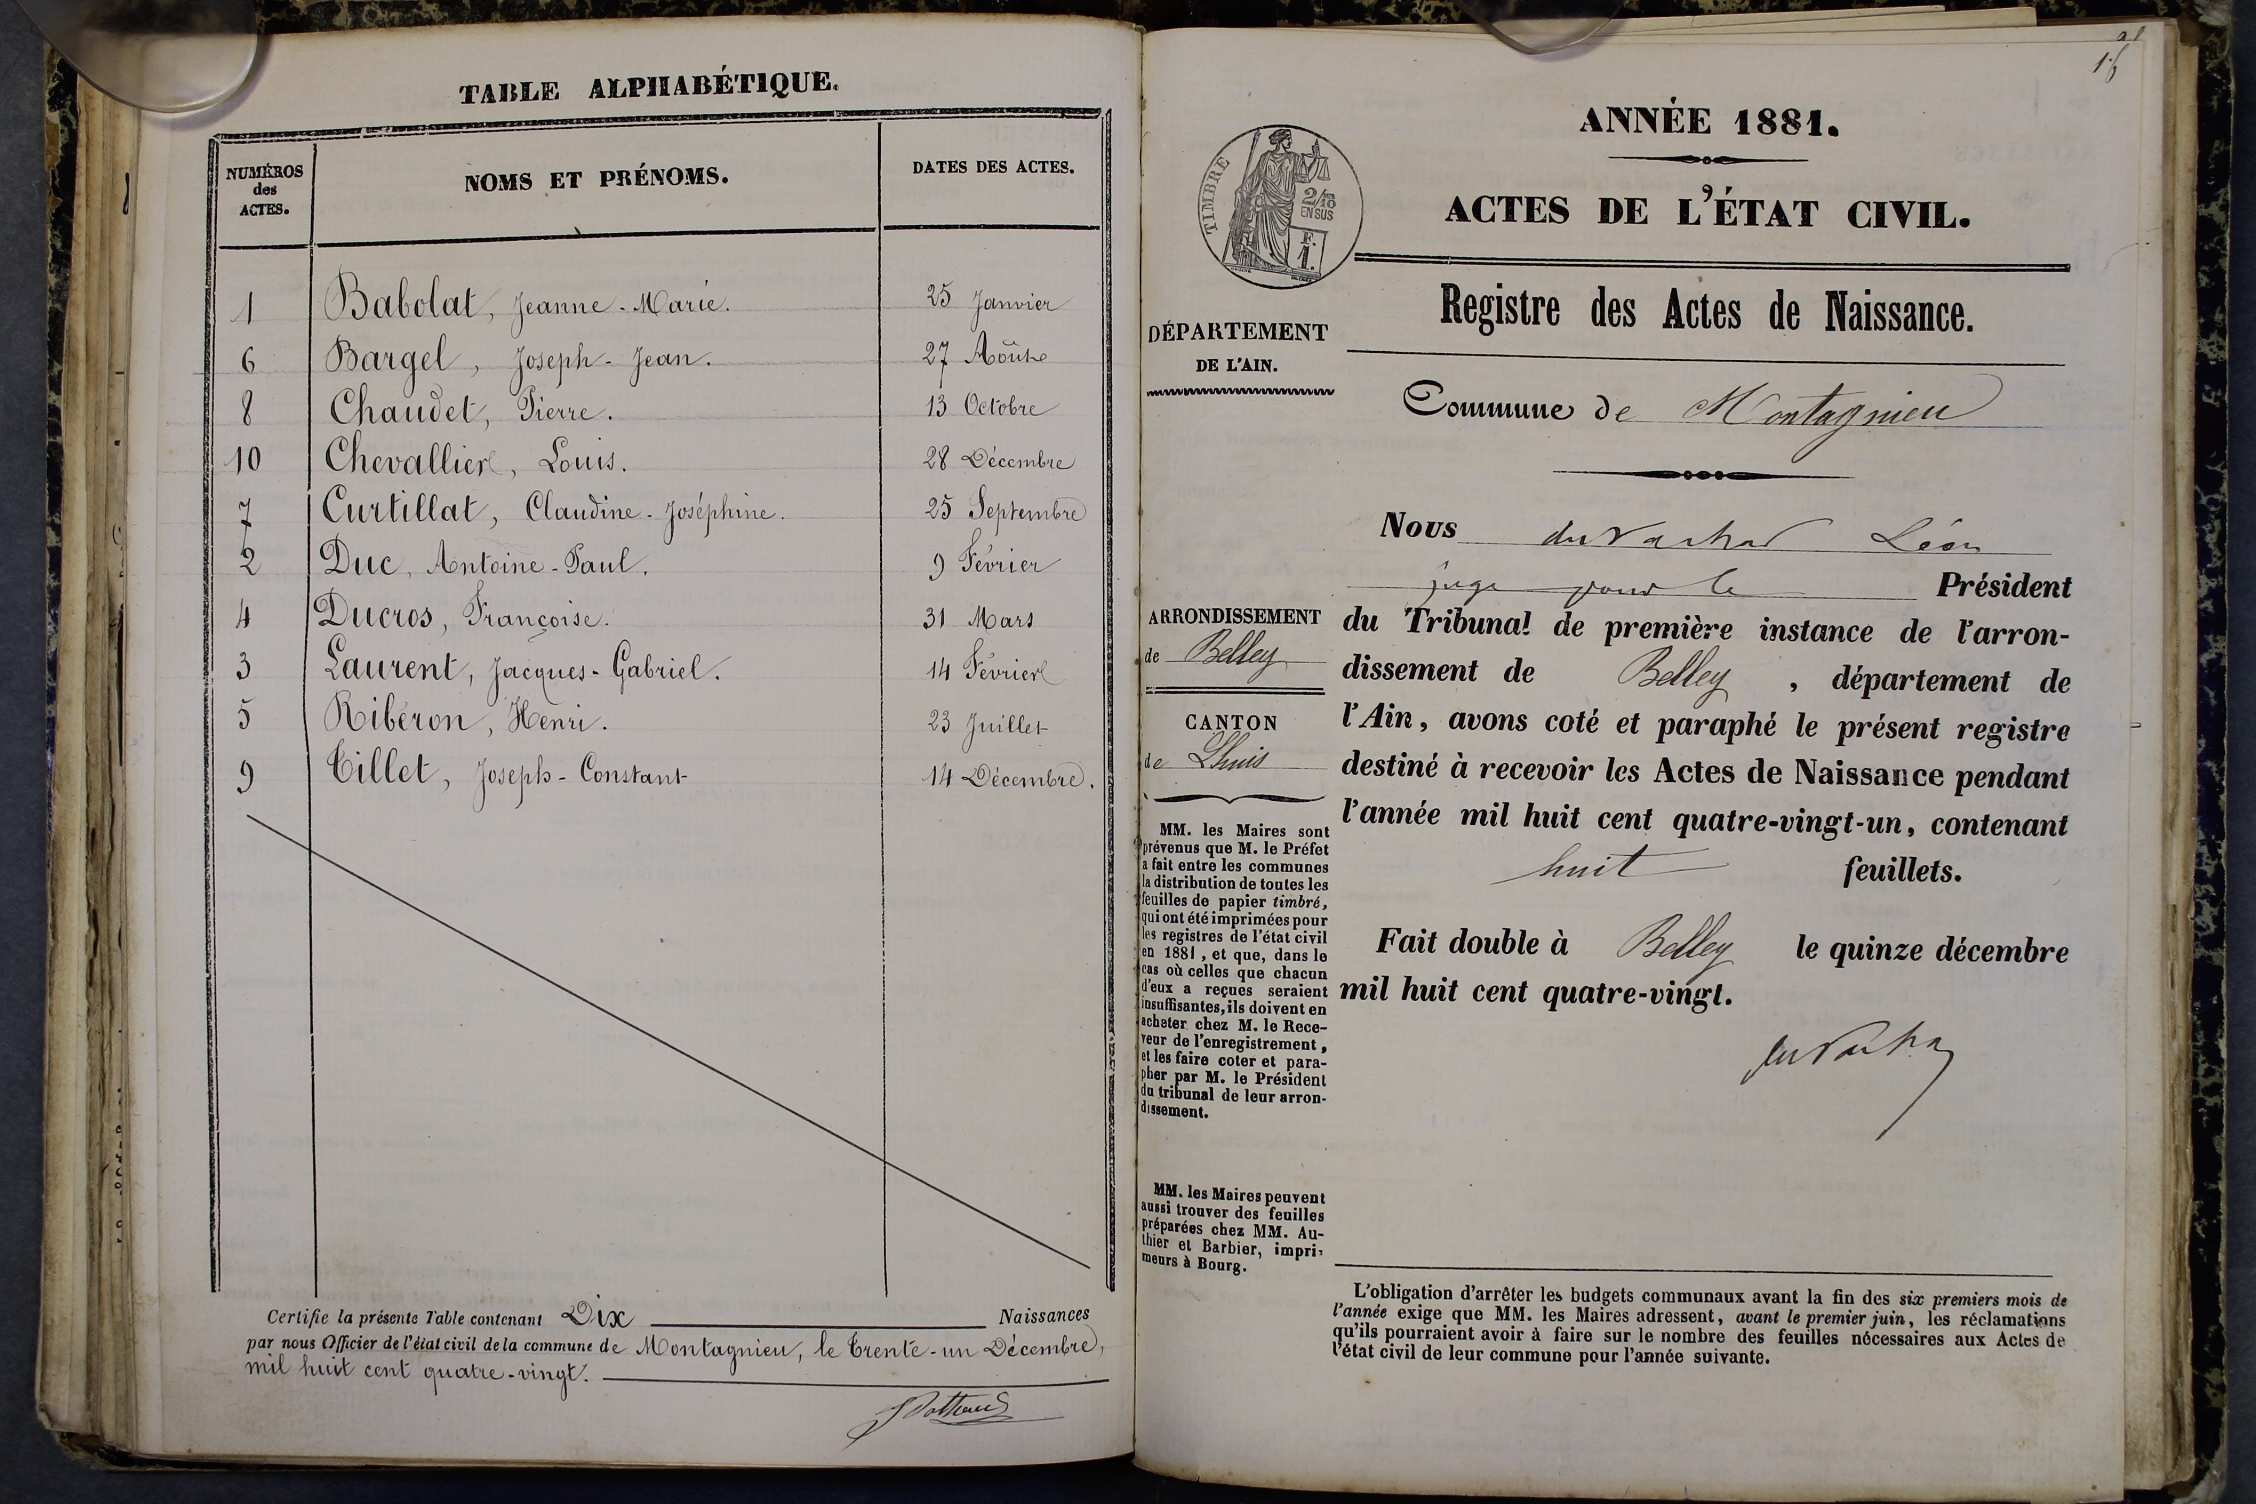 TABLE ALPHABÉTIQUE.
NUMÉROS des ACTES. NOMS ET PRÉNOMS. DATES DES ACTES.
1 Babolat, Jeanne-Marie. 25 Janvier
6 Bargel, Joseph-Jean. 27 Août
8 Chaudet, Pierre. 13 Octobre
10 Chevallier, Louis. 28 Décembre
7 Curtillat, Claudine-Joséphine. 25 Septembre
2 Duc, Antoine-Paul. 9 Février
4 Ducros, Françoise. 31 Mars
3 Laurent, Jacques-Gabriel. 14 Février
5 Ribéron, Henri. 23 Juillet
9 Tillet, Joseph-Constant 14 Décembre.
Certifie la présente Table contenant Dix Naissances
par nous Officier de l'état civil de la commune de Montagnieu, le trente-un Décembre,
mil huit cent quatre-vingt.
ANNÉE 1881.
ACTES DE L'ÉTAT CIVIL.
TIMBRE
2/10
EN SUS
F.
1.
Registre des Actes de Naissance.
DÉPARTEMENT
DE L'AIN.
Commune de Montagnieu
Nous Léon
juge pour le Président
du Tribunal de première instance de l'arron-
dissement de Belley, département de
l'Ain, avons coté et paraphé le présent registre
destiné à recevoir les Actes de Naissance pendant
l'année mil huit cent quatre-vingt-un, contenant
huit feuillets.
Fait double à Belley le quinze décembre
mil huit cent quatre-vingt.
ARRONDISSEMENT
de Belley
CANTON
de Lhuis
MM. les Maires sont
prévenus que M. le Préfet
a fait entre les communes
la distribution de toutes les
feuilles de papier timbré,
qui ont été imprimées pour
les registres de l'état civil
en 1881, et que, dans le
cas où celles que chacun
d'eux a reçues seraient
insuffisantes, ils doivent en
acheter chez M. le Rece-
veur de l'enregistrement,
et les faire coter et para-
pher par M. le Président
du tribunal de leur arron-
dissement.
MM. les Maires peuvent
aussi trouver des feuilles
préparées chez MM. Au-
thier et Barbier, impri-
meurs à Bourg.
L'obligation d'arrêter les budgets communaux avant la fin des six premiers mois de
l'année exige que MM. les Maires adressent, avant le premier juin, les réclamations
qu'ils pourraient avoir à faire sur le nombre des feuilles nécessaires aux Actes de
l'état civil de leur commune pour l'année suivante.